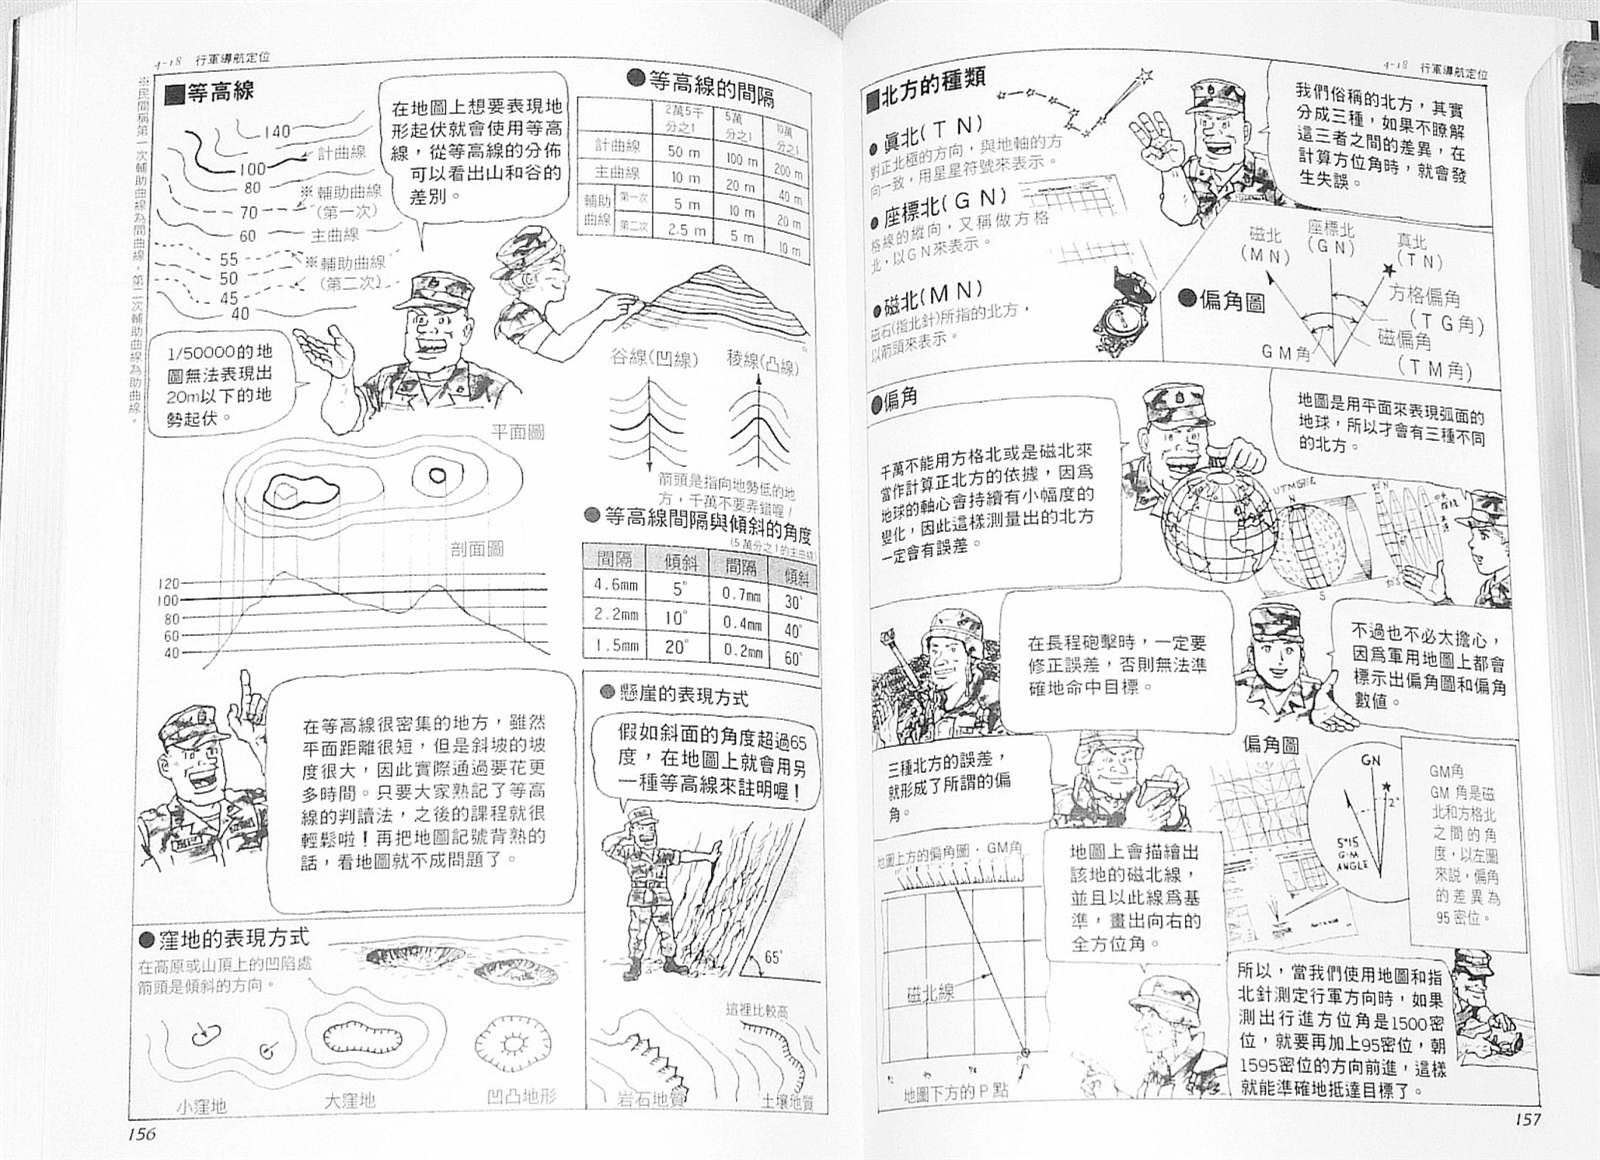 4-18 行軍導航定位
※民間稱第一次輔助曲線為間曲線，第二次輔助曲線為助曲線。
■等高線
140
100
計曲線
80
70
※輔助曲線
(第一次)
60
主曲線
55
50
45
40
※輔助曲線
(第二次)
在地圖上想要表現地
形起伏就會使用等高
線，從等高線的分佈
可以看出山和谷的
差別。
1/50000的地
圖無法表現出
20m以下的地
勢起伏。
●等高線的間隔
2萬5千分之1 5萬分之1 10萬分之1
計曲線 50 m 100 m 200 m
主曲線 10 m 20 m 40 m
輔助曲線 第一次 5 m 10 m 20 m
第二次 2.5 m 5 m 10 m
谷線(凹線)
稜線(凸線)
箭頭是指向地勢低的地
方，千萬不要弄錯喔！
平面圖
剖面圖
120
100
80
60
40
●等高線間隔與傾斜的角度
(5萬分之1的主曲線)
間隔 傾斜 間隔 傾斜
4.6mm 5° 0.7mm 30°
2.2mm 10° 0.4mm 40°
1.5mm 20° 0.2mm 60°
在等高線很密集的地方，雖然
平面距離很短，但是斜坡的坡
度很大，因此實際通過要花更
多時間。只要大家熟記了等高
線的判讀法，之後的課程就很
輕鬆啦！再把地圖記號背熟的
話，看地圖就不成問題了。
●懸崖的表現方式
假如斜面的角度超過65
度，在地圖上就會用另
一種等高線來註明喔！
65°
這裡比較高
岩石地質
土壤地質
●窪地的表現方式
在高原或山頂上的凹陷處
箭頭是傾斜的方向。
小窪地
大窪地
凹凸地形
156
4-18 行軍導航定位
■北方的種類
●眞北(TN)
對正北極的方向，與地軸的方
向一致，用星星符號來表示。
●座標北(GN)
格線的縱向，又稱做方格
北，以GN來表示。
●磁北(MN)
磁石(指北針)所指的北方，
以箭頭來表示。
我們俗稱的北方，其實
分成三種，如果不瞭解
這三者之間的差異，在
計算方位角時，就會發
生失誤。
●偏角圖
磁北
(MN)
座標北
(GN)
真北
(TN)
方格偏角
(TG角)
磁偏角
(TM角)
GM角
●偏角
千萬不能用方格北或是磁北來
當作計算正北方的依據，因爲
地球的軸心會持續有小幅度的
變化，因此這樣測量出的北方
一定會有誤差。
地圖是用平面來表現弧面的
地球，所以才會有三種不同
的北方。
N
S
在長程砲擊時，一定要
修正誤差，否則無法準
確地命中目標。
不過也不必太擔心，
因爲軍用地圖上都會
標示出偏角圖和偏角
數値。
三種北方的誤差，
就形成了所謂的偏
角。
偏角圖
GN
2°
5°15
G-M
ANGLE
GM角
GM角是磁
北和方格北
之間的角
度，以左圖
來說，偏角
的差異為
95密位。
地圖上方的偏角圖・GM角
磁北線
地圖下方的P點
地圖上會描繪出
該地的磁北線，
並且以此線爲基
準，畫出向右的
全方位角。
所以，當我們使用地圖和指
北針測定行軍方向時，如果
測出行進方位角是1500密
位，就要再加上95密位，朝
1595密位的方向前進，這樣
就能準確地抵達目標了。
157